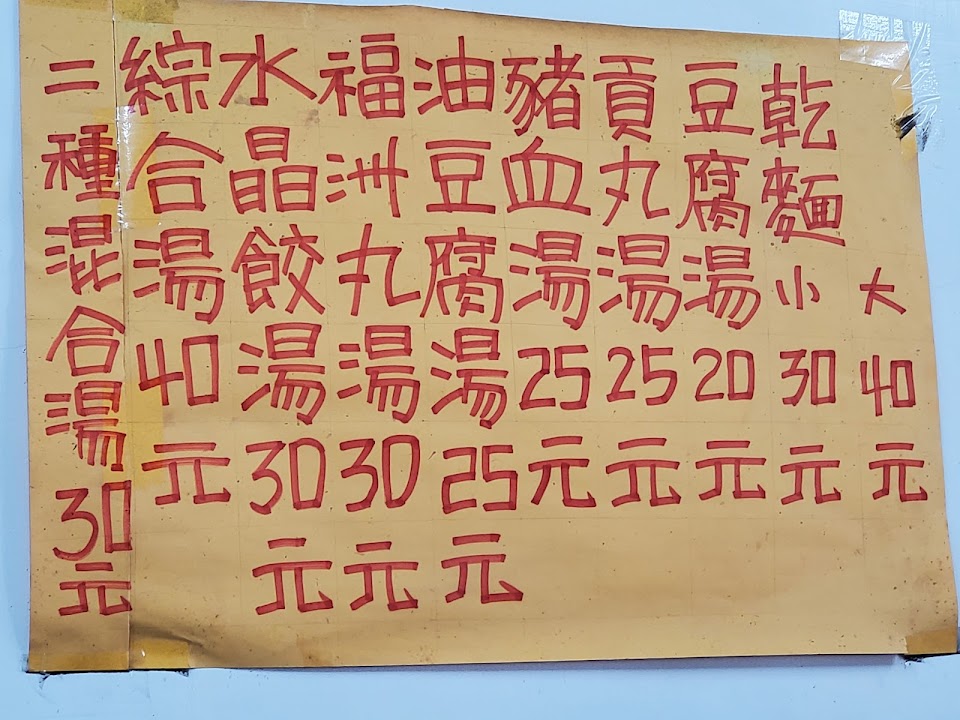 乾麵小30元
大40元
豆腐湯20元
貢丸湯25元
豬血湯25元
油豆腐湯25元
福洲丸湯30元
水晶餃湯30元
綜合湯40元
二種混合湯30元